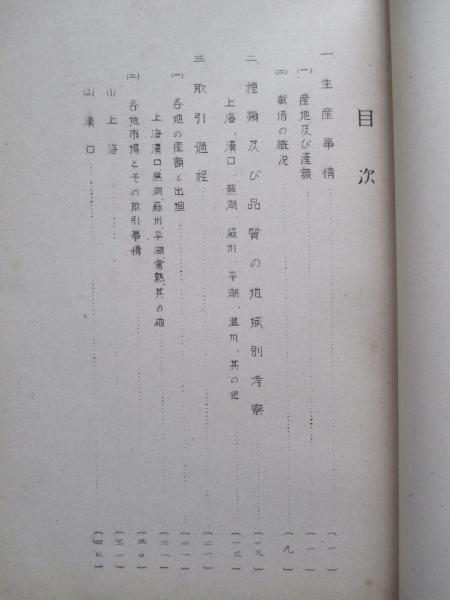 目次
一、生産事情……〔一〕
(一) 産地及び産額……〔一〕
(二) 栽培の概況……〔九〕
二、種類及び品質の地域別考察……〔一三〕
上海、漢口、蕪湖、蘇州、平湖、温州、其の他……〔一三〕
三、取引過程……〔二一〕
(一) 各地の産額と出廻……〔二一〕
上海漢口蕪湖、蘇州、平湖常熟、其の他……〔二一〕
(二) 各地市場とその取引事情……〔三〇〕
(1) 上海……〔三一〕
(2) 漢口……〔四七〕